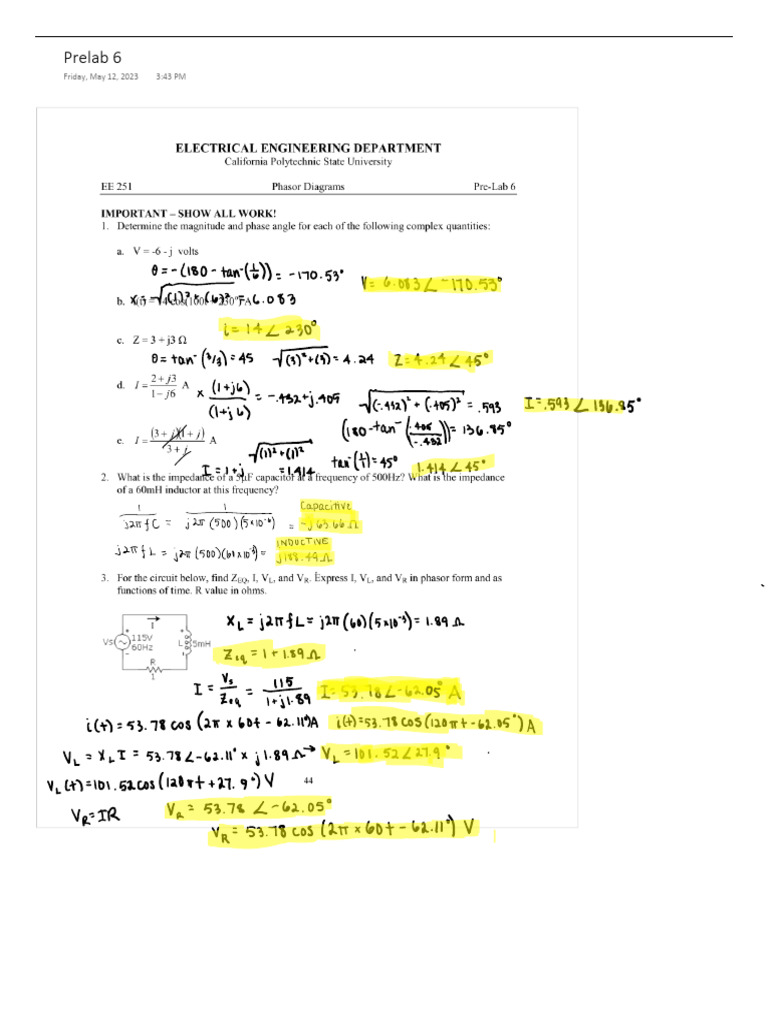 Prelab 6
Friday, May 12, 2023 3:43 PM
ELECTRICAL ENGINEERING DEPARTMENT
California Polytechnic State University
EE 251 Phasor Diagrams Pre-Lab 6
IMPORTANT – SHOW ALL WORK!
1. Determine the magnitude and phase angle for each of the following complex quantities:
a. V = -6 - j volts
θ = -(180 - tan⁻(1/6)) = -170.53°
V = 6.083∠-170.53°
b. A
√(1)² + (6)² = 6.083
i = 14∠230°
c. Z = 3 + j3 Ω
θ = tan⁻(3/3) = 45 √(3)²+(3) = 4.24 Z = 4.24∠45°
d. I = (2 + j3)/(1 − j6) A
x (1+j6)/(1+j6) = -.432+j.405 √(-.432)² + (.405)² = .593 I = .593∠136.85°
(180 - tan⁻(.405/-.432)) = 136.85°
e. I = (3 + j)(1 + j)/(3 + j) A
I = 1+j √(1)²+(1)² = 1.414 tan⁻(1/1) = 45° 1.414∠45°
2. What is the impedance of a 5μF capacitor at a frequency of 500Hz? What is the impedance
of a 60mH inductor at this frequency?
1/(j2πfC) = 1/(j2π(500)(5×10⁻⁶)) = Capacitive -j63.66 Ω
j2πfL = j2π(500)(60×10⁻³) = INDUCTIVE j188.49 Ω
3. For the circuit below, find Z_EQ, I, V_L, and V_R. Express I, V_L, and V_R in phasor form and as
functions of time. R value in ohms.
I
Vs 115V
60Hz
L 5mH
R
1
X_L = j2πfL = j2π(60)(5×10⁻³) = 1.89 Ω
Z_eq = 1 + 1.89 Ω
I = V_s/Z_eq = 115/(1+j1.89) I = 53.78∠-62.05° A
i(t) = 53.78 cos(2π × 60t - 62.11°)A i(t) = 53.78 cos(120πt - 62.05°)A
V_L = X_L I = 53.78∠-62.11° × j1.89 Ω → V_L = 101.52∠27.9°
V_L(t) = 101.52cos(120πt + 27.9°) V
44
V_R = IR V_R = 53.78 ∠-62.05°
V_R = 53.78 cos(2π × 60t - 62.11°) V